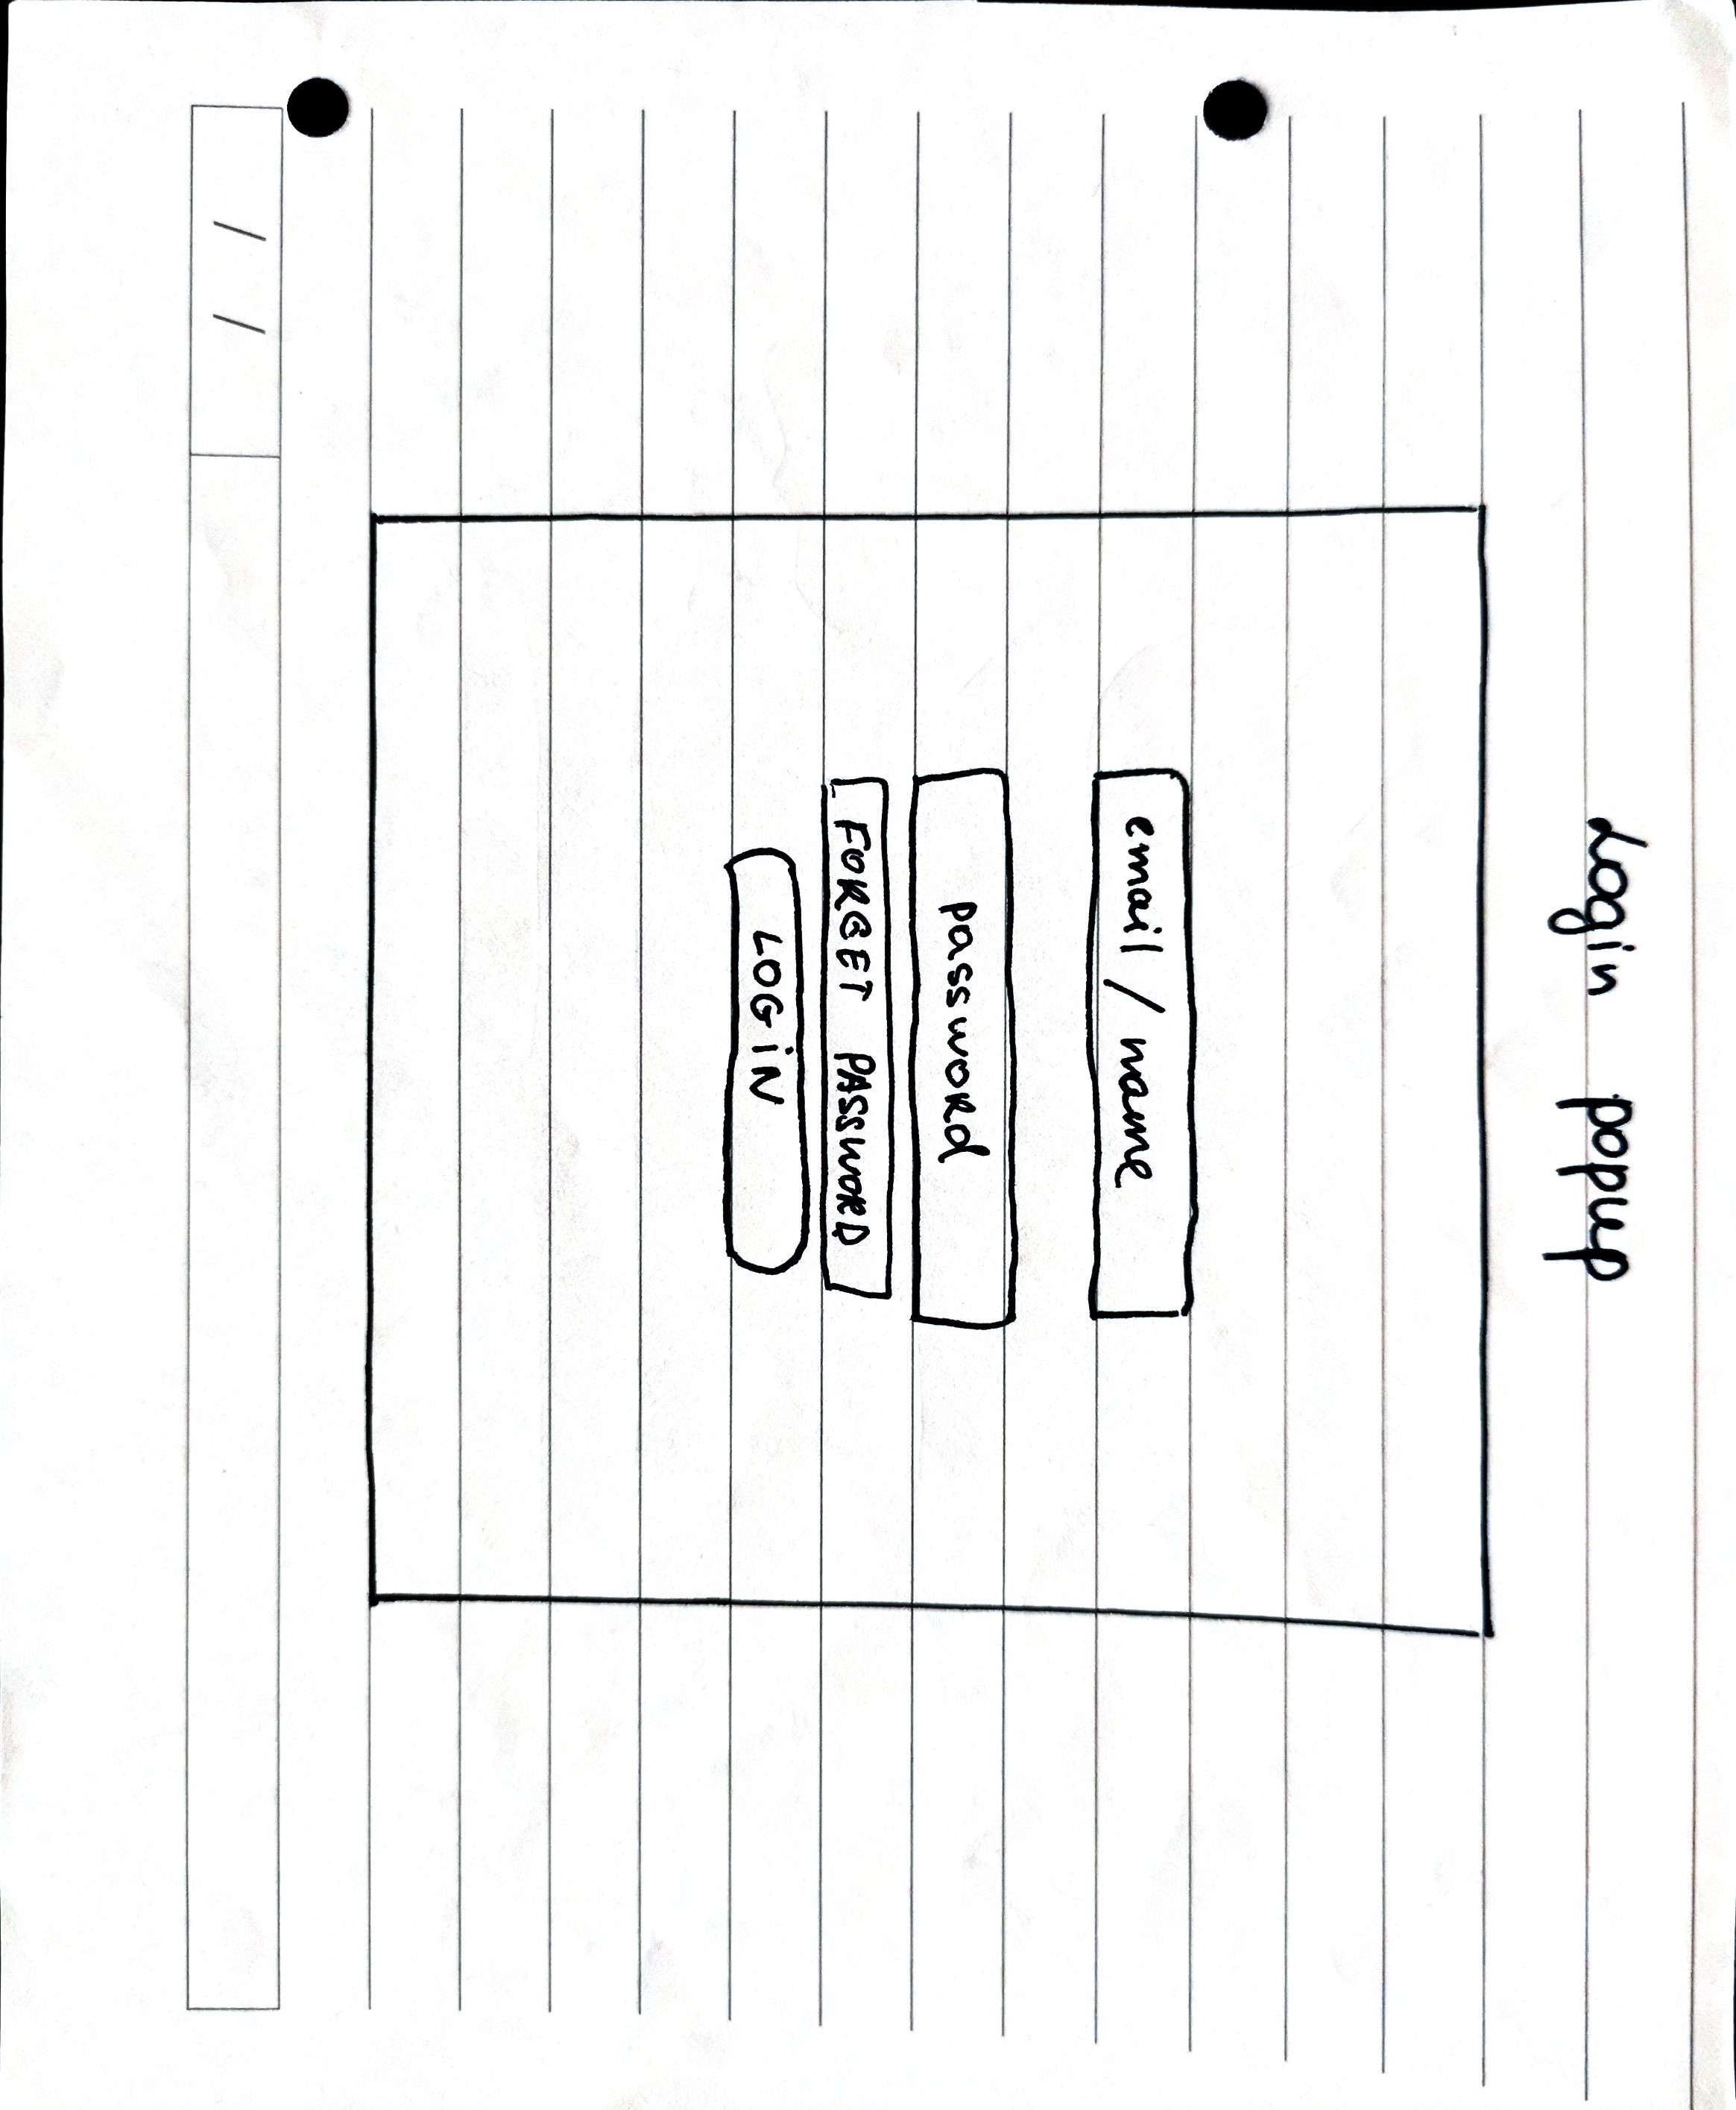 Login popup
email / name
password
FORGET PASSWORD
LOGiN
/ /